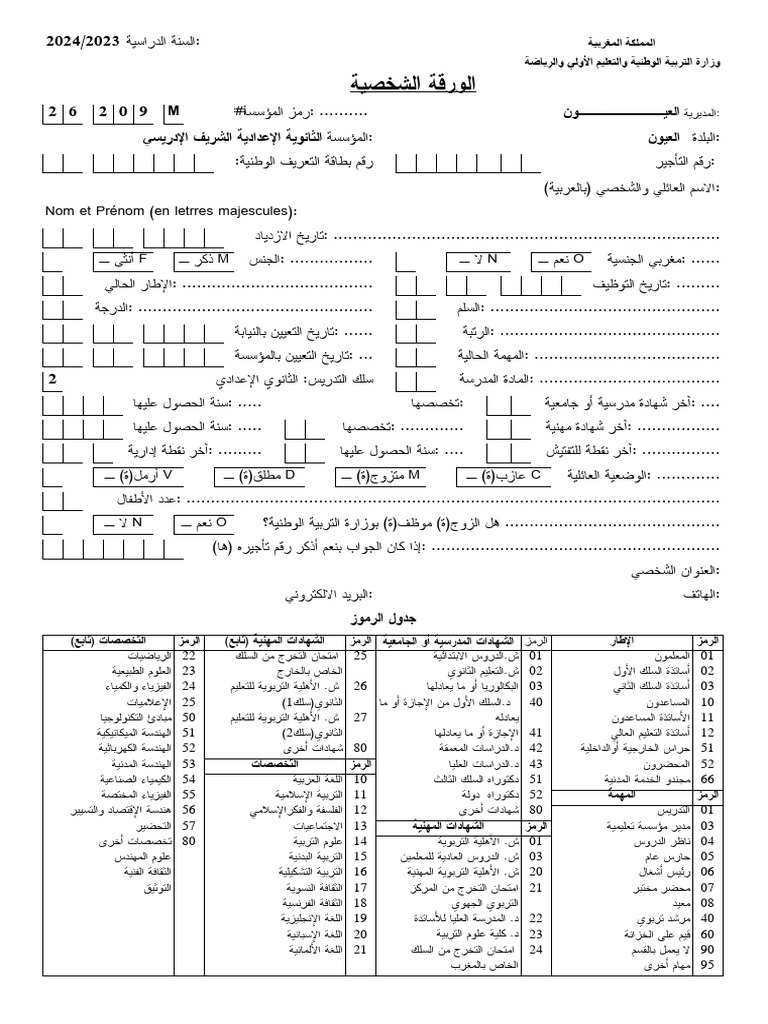 المملكة المغربية
السنة الدراسية :2024/2023
وزارة التربية الوطنية والتعليم الأولي والرياضة
الورقة الشخصية
المديرية: العيـــــــــــــون
رمز المؤسسة#i: .......... M 2 0 9 2 6
البلدة: العيون
المؤسسة: الثانوية الإعدادية الشريف الإدريسي
رقم التأجير:
رقم بطاقة التعريف الوطنية:
الاسم العائلي والشخصي (بالعربية):
Nom et Prénom (en letrres majescules):
تاريخ الازدياد: ......
مغربي الجنسية: ...... O نعم ــ N لا ــ
الجنس: ................ M ذكر ــ F أنثى ــ
تاريخ التوظيف: .........
الإطار الحالي: ......
السلم: ......
الدرجة: ......
الرتبة: ......
تاريخ التعيين بالنيابة: ......
المهمة الحالية: ......
تاريخ التعيين بالمؤسسة: ...
المادة المدرسة: ......
سلك التدريس: الثانوي الإعدادي 2
آخر شهادة مدرسية أو جامعية: .... تخصصها: ..... سنة الحصول عليها:
آخر شهادة مهنية: ...... تخصصها: ............ سنة الحصول عليها: .....
آخر نقطة للتفتيش: ...... سنة الحصول عليها: .... آخر نقطة إدارية: .........
الوضعية العائلية: ............ C عازب(ة) ــ M متزوج(ة) ــ D مطلق(ة) ــ V أرمل(ة) ــ
عدد الأطفال: ......
هل الزوج(ة) موظف(ة) بوزارة التربية الوطنية؟ ...... O نعم ــ N لا ــ
إذا كان الجواب بنعم أذكر رقم تأجيره (ها): ......
العنوان الشخصي:
الهاتف:
البريد الالكتروني:
جدول الرموز
الرمز الإطار
01 المعلمون
02 أساتذة السلك الأول
03 أساتذة السلك الثاني
10 المساعدون
11 الأساتذة المساعدون
12 أساتذة التعليم العالي
51 حراس الخارجية أوالداخلية
52 المحضرون
66 مجندو الخدمة المدنية
الرمز المهمة
01 التدريس
03 مدير مؤسسة تعليمية
04 ناظر الدروس
05 حارس عام
06 رئيس أشغال
07 محضر مختبر
08 معيد
40 مرشد تربوي
60 قيم على الخزانة
90 لا يعمل بالقسم
95 مهام أخرى
الرمز الشهادات المدرسية أو الجامعية
01 ش.الدروس الابتدائية
02 ش.التعليم الثانوي
03 البكالوريا أو ما يعادلها
40 د.السلك الأول من الإجازة أو ما
يعادله
41 الإجازة أو ما يعادلها
42 د.الدراسات المعمقة
43 د.الدراسات العليا
51 دكتوراه السلك الثالث
52 دكتوراه دولة
80 شهادات أخرى
الرمز الشهادات المهنية
01 ش. الأهلية التربوية
03 ش. الدروس العادية للمعلمين
20 ش. الأهلية التربوية المهنية
21 امتحان التخرج من المركز
التربوي الجهوي
22 د. المدرسة العليا للأساتذة
23 د. كلية علوم التربية
24 امتحان التخرج من السلك
الخاص بالمغرب
الرمز الشهادات المهنية (تابع)
25 امتحان التخرج من السلك
الخاص بالخارج
26 ش. الأهلية التربوية للتعليم
الثانوي(سلك1)
27 ش. الأهلية التربوية للتعليم
الثانوي(سلك2)
80 شهادات أخرى
الرمز التخصصات
10 اللغة العربية
11 التربية الإسلامية
12 الفلسفة والفكرالإسلامي
13 الاجتماعيات
14 علوم التربية
15 التربية البدنية
16 التربية التشكيلية
17 الثقافة النسوية
18 الثقافة الفرنسية
19 اللغة الإنجليزية
20 اللغة الإسبانية
21 اللغة الألمانية
الرمز التخصصات (تابع)
22 الرياضيات
23 العلوم الطبيعية
24 الفيزياء والكمياء
25 الإعلاميات
50 مبادئ التكنولوجيا
51 الهندسة الميكانيكية
52 الهندسة الكهربائية
53 الهندسة المدنية
54 الكيمياء الصناعية
55 الفيزياء المختصة
56 هندسة الإقتصاد والتسيير
57 التحضير
80 تخصصات أخرى
علوم المهندس
الثقافة الفنية
التوثيق